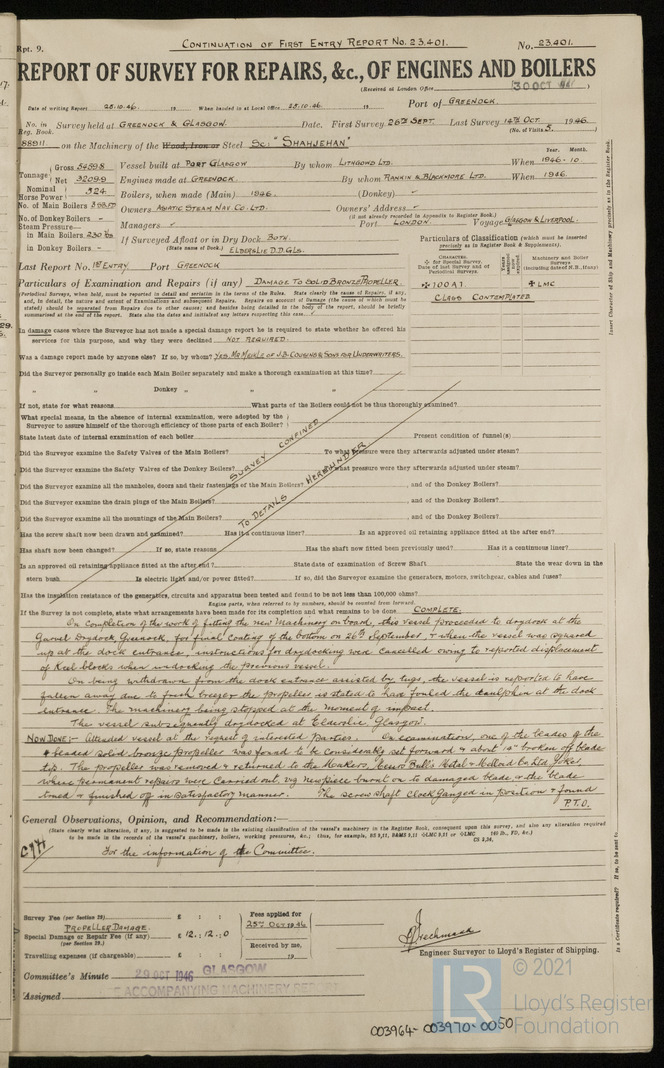 Rpt. 9.
CONTINUATION OF FIRST ENTRY REPORT No. 23,401.
No. 23,401.
REPORT OF SURVEY FOR REPAIRS, &c., OF ENGINES AND BOILERS
(Received at London Office 30 OCT
Date of writing Report 28.10.46. 19 When handed in at Local Office 28.10.46. 19 Port of GREENOCK.
No. in Reg. Book. Survey held at GREENOCK & GLASGOW. Date, First Survey 26TH SEPT Last Survey 14TH OCT. 1946.
(No. of Visits 5.)
88911 on the Machinery of the Wood, Iron or Steel Sc. "SHAHJEHAN"
Year. Month.
Tonnage Gross Vessel built at PORT GLASGOW By whom LITHGOWS LTD. When 1946-10
Net Engines made at GREENOCK. By whom RANKIN & BLACKMORE LTD. When 1946.
Nominal Horse Power 524 Boilers, when made (Main) 1946. (Donkey) ✓
No. of Main Boilers Owners ASIATIC STEAM NAV. CO. LTD. Owners' Address ✓
(if not already recorded in Appendix to Register Book.)
No. of Donkey Boilers - Managers ✓ Port LONDON. Voyage GLASGOW & LIVERPOOL.
Steam Pressure—
in Main Boilers If Surveyed Afloat or in Dry Dock BOTH.
in Donkey Boilers - (State name of Dock.) ELDERSLIE D.D. GLS.
Particulars of Classification (which must be inserted precisely as in Register Book & Supplements).
Last Report No. 1ST ENTRY Port GREENOCK
Particulars of Examination and Repairs (if any) DAMAGE TO SOLID BRONZE PROPELLER
✠100A1 ✠LMC
CLASS CONTEMPLATED
(Periodical Surveys, when held, must be reported in detail and seriatim in the terms of the Rules. State clearly the cause of Repairs, if any,
In damage cases where the Surveyor has not made a special damage report he is required to state whether he offered his
services for this purpose, and why they were declined NOT REQUIRED.
Was a damage report made by anyone else? If so, by whom? YES. MR MEIKLE OF J.B. COUSINS & SONS FOR UNDERWRITERS.
Did the Surveyor personally go inside each Main Boiler separately and make a thorough examination at this time?
" " Donkey "
If not, state for what reasons What parts of the Boilers could not be thus thoroughly examined?
What special means, in the absence of internal examination, were adopted by the
Surveyor to assure himself of the thorough efficiency of those parts of each Boiler?
State latest date of internal examination of each boiler Present condition of funnel(s)
Did the Surveyor examine the Safety Valves of the Main Boilers? To what pressure were they afterwards adjusted under steam?
Did the Surveyor examine the Safety Valves of the Donkey Boilers? To what pressure were they afterwards adjusted under steam?
Did the Surveyor examine all the manholes, doors and their fastenings of the Main Boilers? , and of the Donkey Boilers?
Did the Surveyor examine the drain plugs of the Main Boilers? , and of the Donkey Boilers?
Did the Surveyor examine all the mountings of the Main Boilers? , and of the Donkey Boilers?
SURVEY CONFINED
TO DETAILS HEREUNDER
Has the screw shaft now been drawn and examined? Has it a continuous liner? Is an approved oil retaining appliance fitted at the after end?
Has shaft now been changed? If so, state reasons Has the shaft now fitted been previously used? Has it a continuous liner?
Is an approved oil retaining appliance fitted at the after end? State date of examination of Screw Shaft State the wear down in the
stern bush Is electric light and/or power fitted? If so, did the Surveyor examine the generators, motors, switchgear, cables and fuses?
Has the insulation resistance of the generators, circuits and apparatus been tested and found to be not less than 100,000 ohms?
Engine parts, when referred to by numbers, should be counted from forward.
If the Survey is not complete, state what arrangements have been made for its completion and what remains to be done COMPLETE.
On completion of the work of fitting the new Machinery on board, this vessel proceeded to drydock at the
Garvel Drydock Greenock, for final coating of the bottom on 26th September, & when the vessel was squared
up at the dock entrance, instructions for drydocking were cancelled owing to reported displacement
of keel blocks when undocking the previous vessel.
On being withdrawn from the dock entrance assisted by tugs, the vessel is reported to have
fallen away due to fresh breeze & the propeller is stated to have fouled the daulphin at the dock
entrance. The machinery being stopped at the moment of impact.
The vessel subsequently drydocked at Elderslie, Glasgow.
NOW DONE:- Attended vessel at the request of interested parties. On examination, one of the blades of the
4 bladed solid bronze propeller was found to be considerably set forward & about 10" broken off blade
tip. The propeller was removed & returned to the Makers, Messrs Bull's Metal & Melloid Co Ltd Yoker,
where permanent repairs were carried out, viz new piece burnt on to damaged blade, & the blade
tuned & finished off in satisfactory manner. The screw shaft clock gauged in position & found
P.T.O.
General Observations, Opinion, and Recommendation:—
(State clearly what alteration, if any, is suggested to be made in the existing classification of the vessel's machinery in the Register Book, consequent upon this survey, and also any alteration required
For the information of the Committee.
Survey Fee (per Section 29) £ : :
PROPELLER DAMAGE.
Special Damage or Repair Fee (if any) £ 12 : 12 : 0
(per Section 29.)
Travelling expenses (if chargeable) £ : :
Fees applied for
25TH OCT 1946
Received by me,
19
Engineer Surveyor to Lloyd's Register of Shipping.
Committee's Minute 29 OCT 1946 GLASGOW
Assigned ACCOMPANYING MACHINERY REPORT
© 2021
LR
Lloyd's Register
Foundation
003964-003970-0050